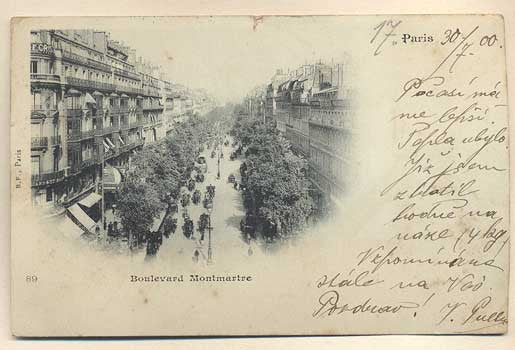 17 Paris 30/7. 00.
Počasí má
me lepší.
Tepla ubylo.
Již jsem
ztratil
hodně na
váze (4 kg)
Vzpomínáme
stále na Vás
Pozdrav! V.
B.F., Paris
89
Boulevard Montmartre